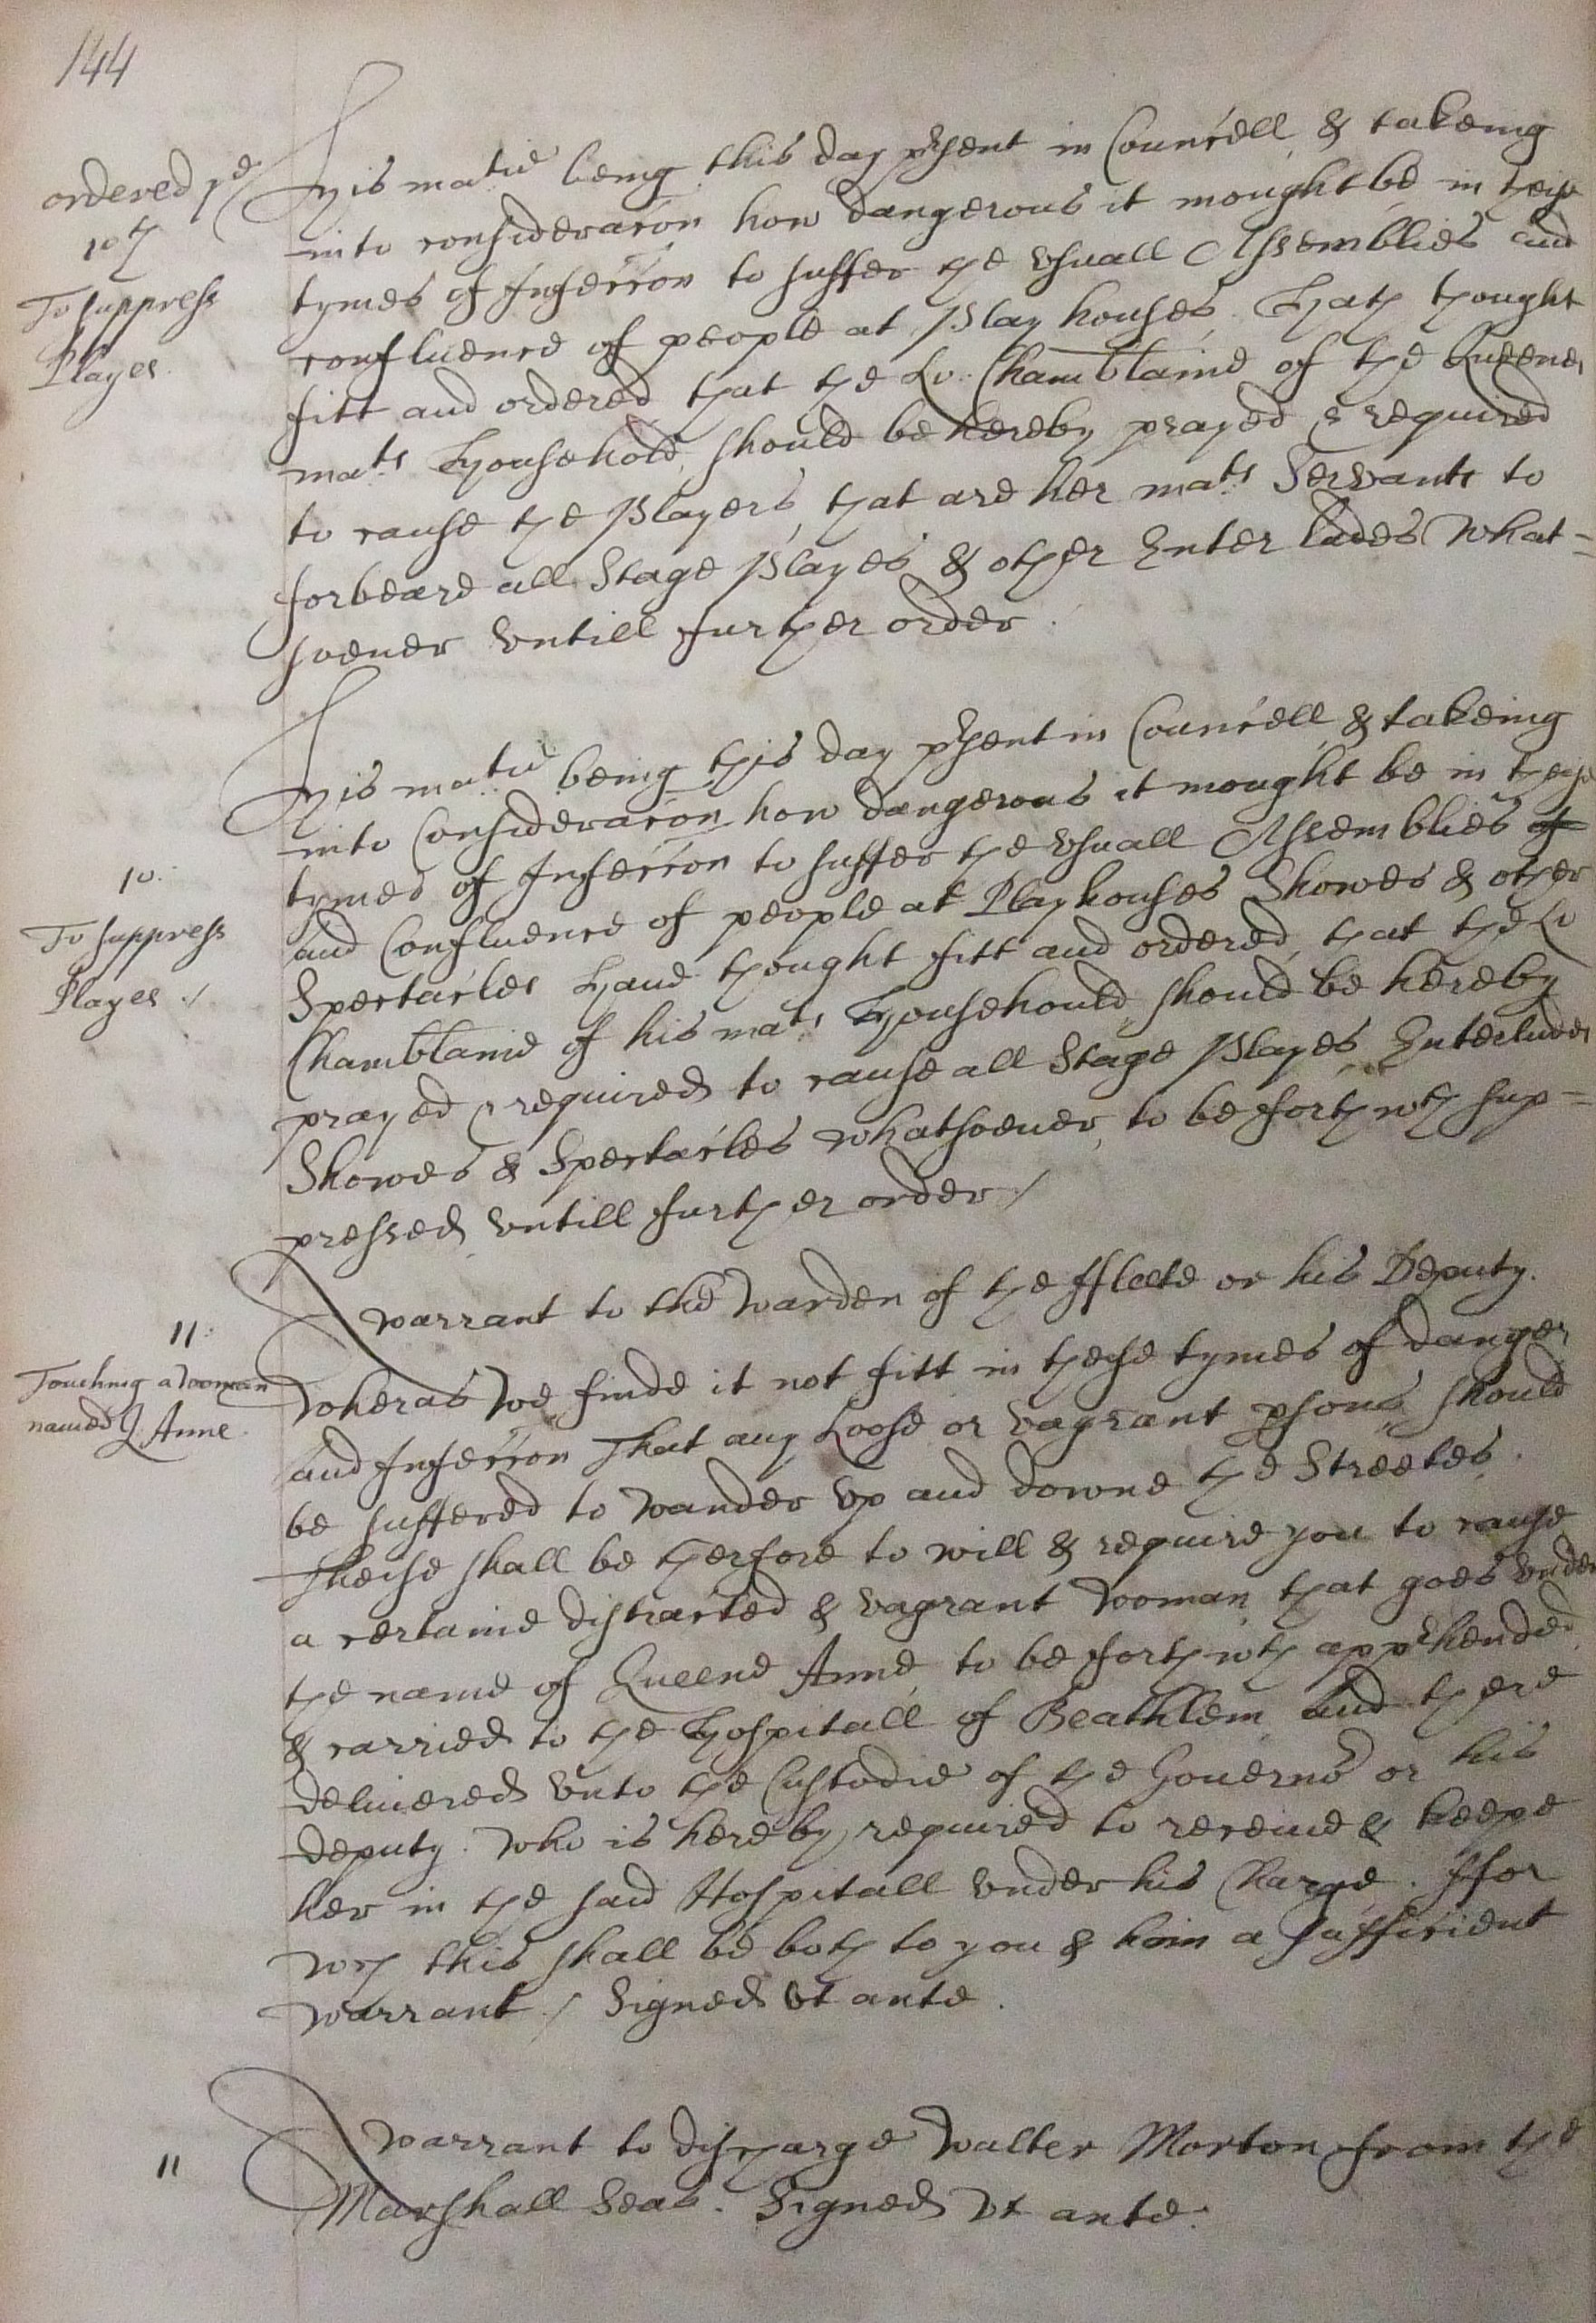 144
ordered ye
10th
To suppress
Playes.
His matie being this day psent in Councell & takeing
into consideracon how dangerous it mought be in theis
tymes of Infeccon to suffer the vsuall Assemblies and
confluence of people at Play houses. Hath thought
fitt and ordered that the Lo: Chamblaine of the Queenes
mats Household, should be hereby prayed & required
to cause the Players, that are her mats Servants to
forbeare all Stage Playes & other Enterludes what=
soeuer vntill further order.
10.
To suppress
Playes ./
His matie being this day psent in Councell & takeing
into Consideracon how dangerous it mought be in theise
tymes of Infeccon to suffer the vsuall Assemblies of
and Confluence of people at Playhouses Showes & other
Spectacles Haue thought fitt and ordered, that the Lo
Chamblaine of his mats Househould, should be hereby
prayed & required to cause all Stage Playes, Enterludes
Showes & Spectacles whatsoeuer, to be forthwth sup=
pressed vntill further order /
11:
Touching a Wooman
named Q. Anne.
A warrant to the Warden of the Fleete or his Deputy.
Wheras We finde it not fitt in theise tymes of danger
and Infeccon That any Loose or vagrant psons should
be suffered to Wander vp and downe the Streetes.
Theise shall be therfore to will & require you to cause
a certaine distracted & vagrant Wooman that goes vnder
the name of Queene Anne to be forthwth apphended
& carried to the Hospitall of Beathlem, and there
deliuered vnto the Custodie of the Gouernor or his
deputy. Who is hereby required to receiue & keepe
her in the said Hospitall vnder his Charge. Ffor
wch this shall be both to you & him a sufficient
warrant ./ Signed vt ante.
11
A warrant to discharge Walter Morton from the
Marshall Seas. Signed vt ante.